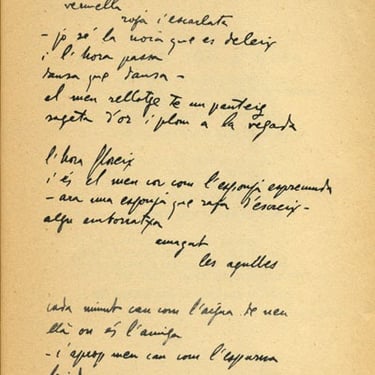 vermella
roja i escarlata
- jo sé la noia que es deleix
i l'hora passa
dansa que dansa -
el meu rellotge té un panteig
sageta d'or i plom a la vegada
l'hora floreix
i és el meu cor com l'esponja espremuda
- ara una esponja que raja d'escreix -
algú entorratxa
amagat
les agulles
cada minut cau com l'aigua de neu
ellà on és l'amiga
- i a prop meu cau com l'escuma